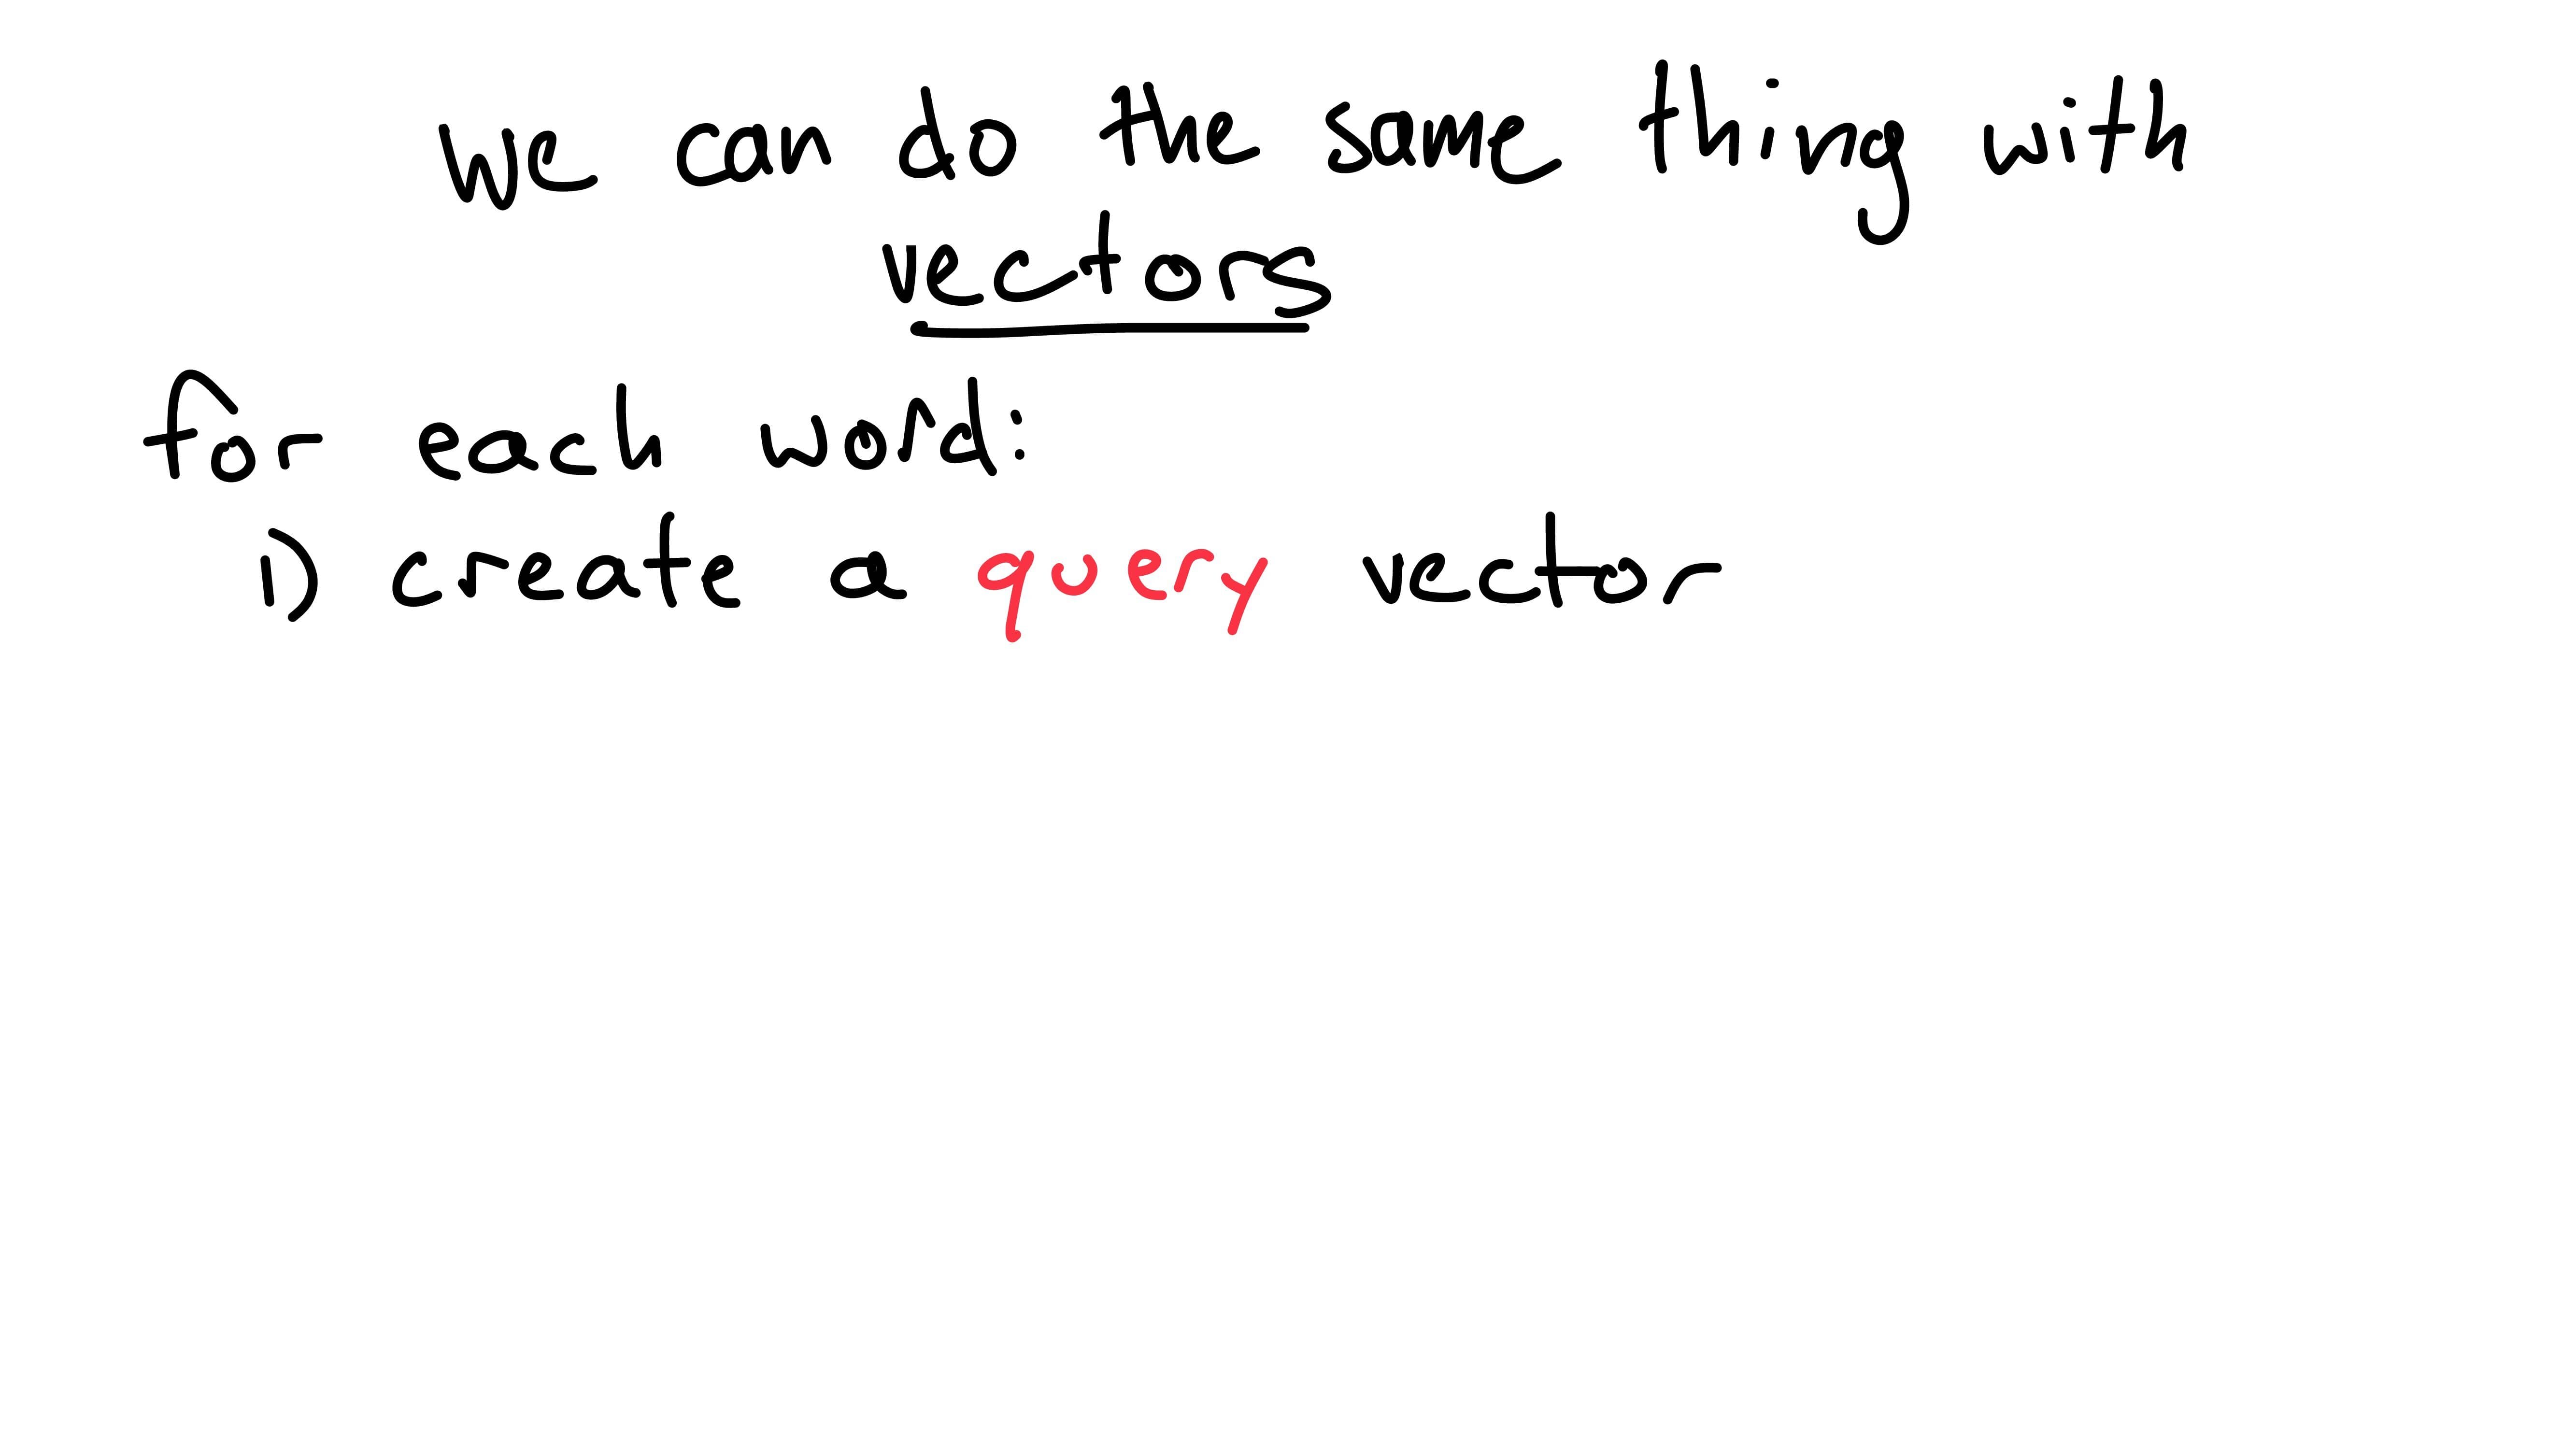 We can do the same thing with
vectors
for each word:
1) create a query vector